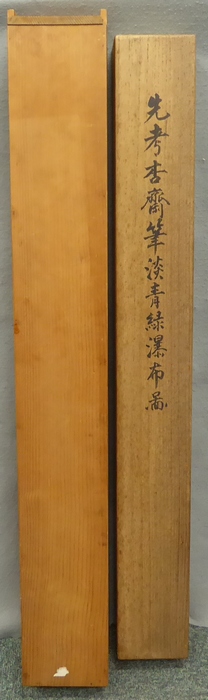 先考杏齋筆淡青緑瀑布圖